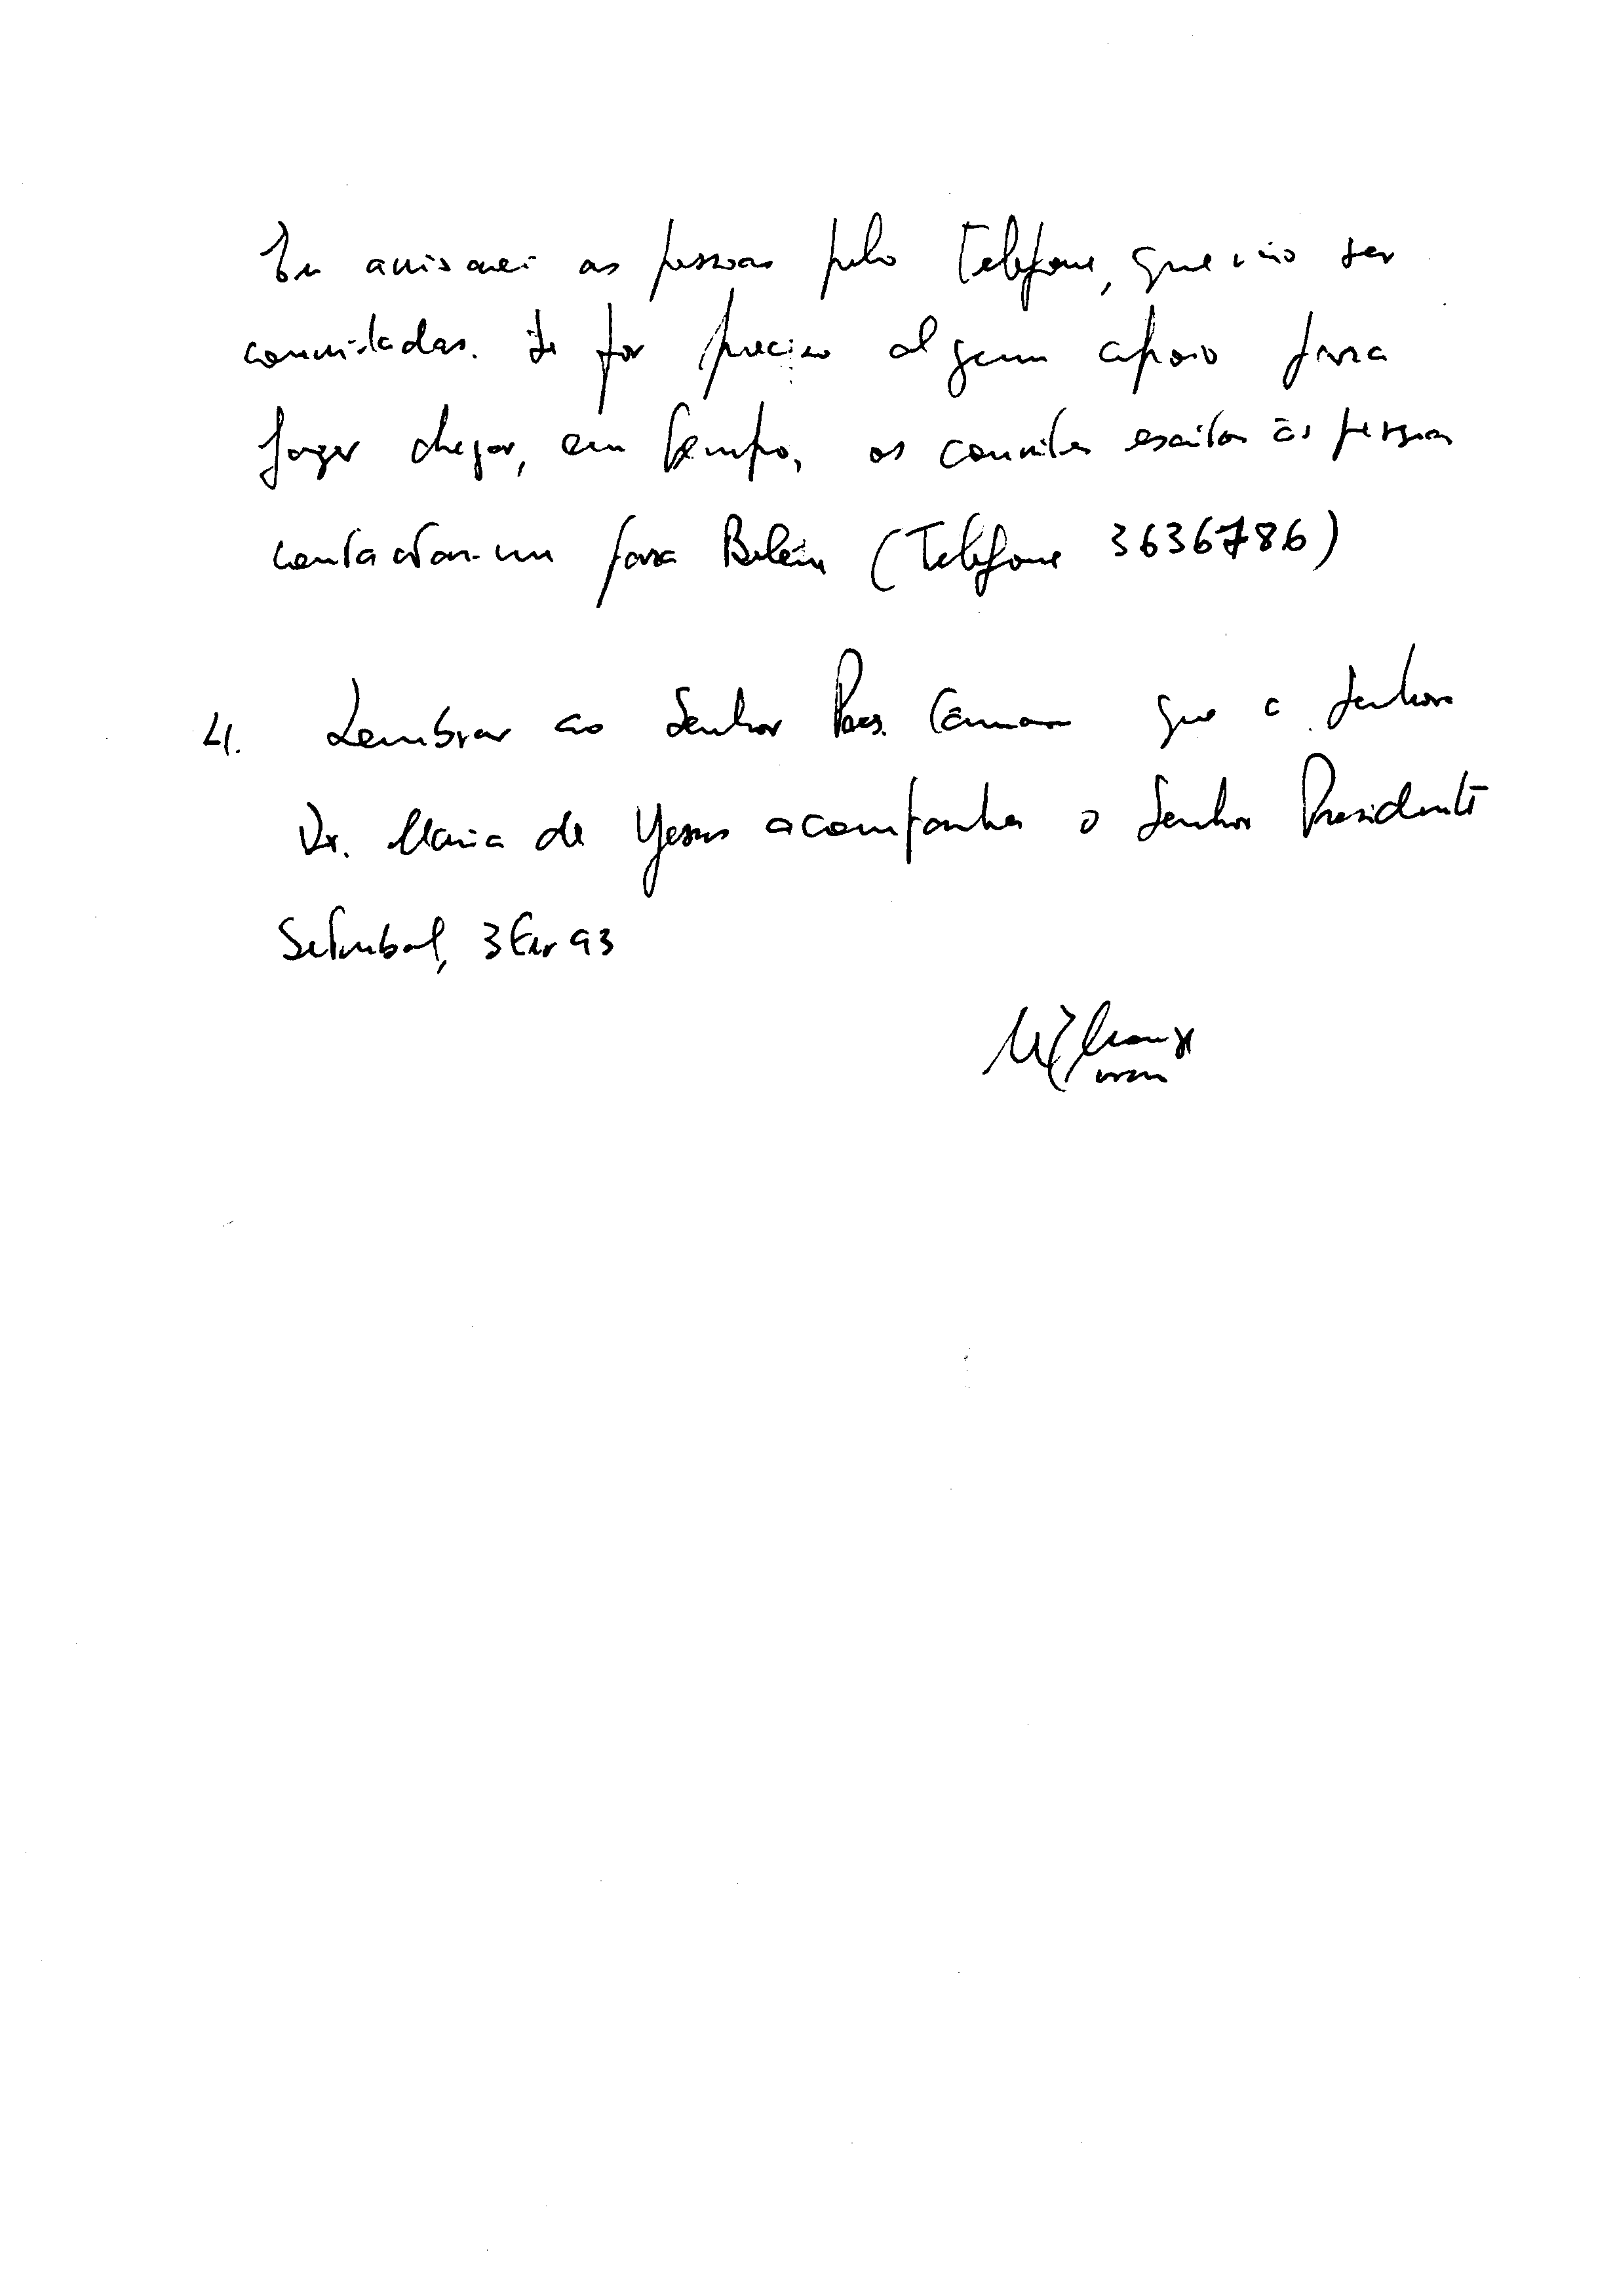 Eu avisarei as pessoas pelo Telefone, que vão ser
convidadas. Se for preciso algum apoio para
fazer chegar, em tempo, os convites escritos às pessoas
contactar-me para Belém (Telefone 3636786)
4. Lembrar ao Senhor Pres. Câmara que a Senhora
Dr. Maria de Jesus acompanha o Senhor Presidente
Setubal, 3 Fev 93